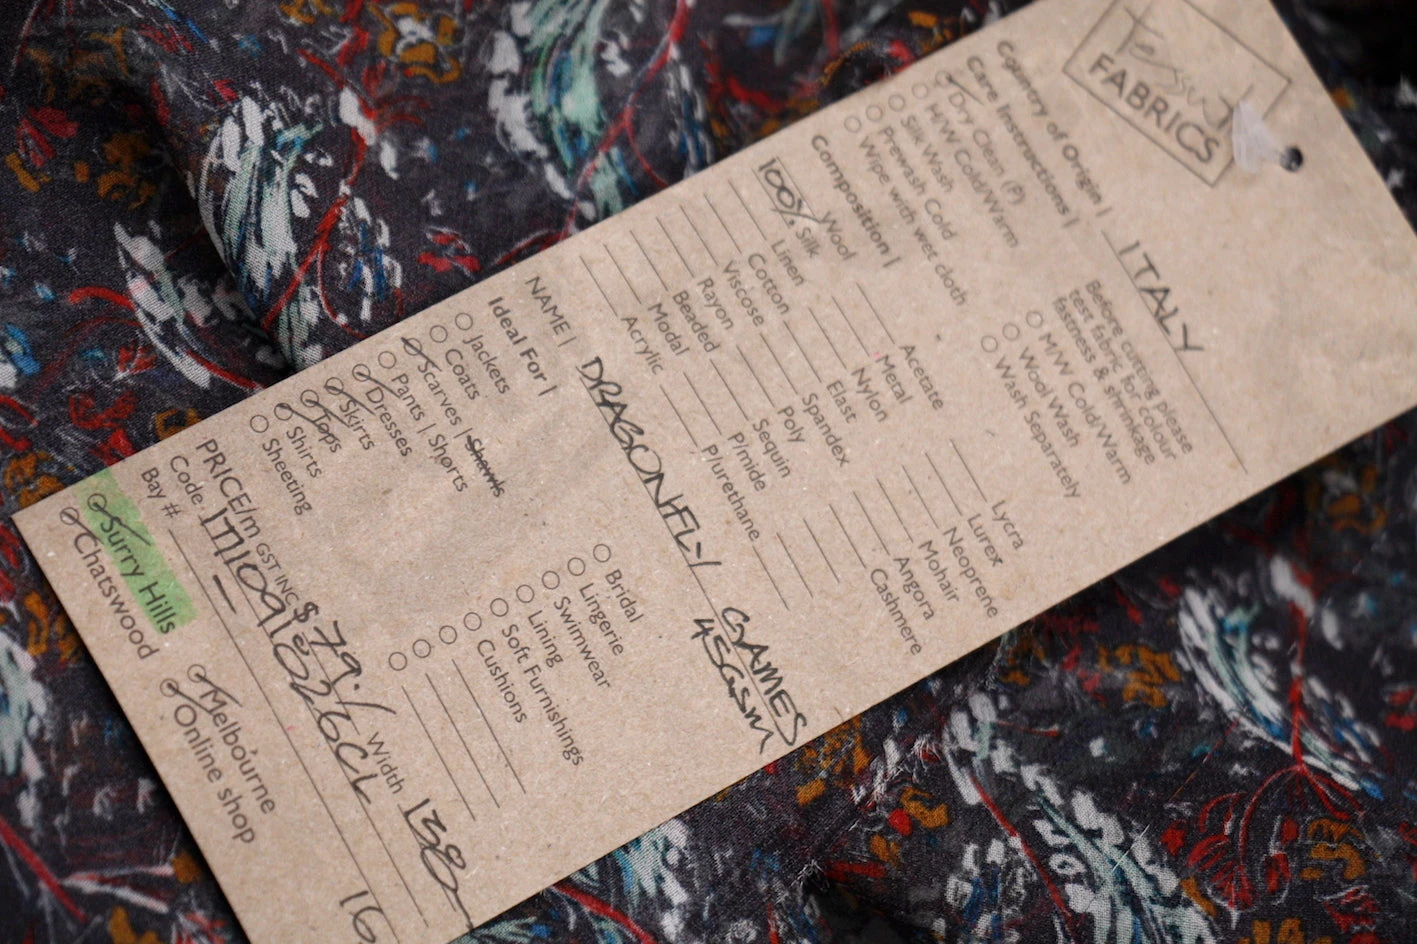 Tessuti
FABRICS
Country of Origin | ITALY
Care Instructions |
Dry Clean (P)
H/W Cold/Warm
Silk Wash
Prewash Cold
Wipe with wet cloth
Before cutting please
test fabric for colour
fastness & shrinkage
M/W Cold/Warm
Wool Wash
Wash Separately
Composition |
Wool
100% Silk
Linen
Cotton
Viscose
Rayon
Beaded
Modal
Acrylic
Acetate
Metal
Nylon
Elast
Spandex
Poly
Sequin
P/mide
P/urethane
Lycra
Lurex
Neoprene
Mohair
Angora
Cashmere
NAME | DRAGONFLY GAMES
45GSM
Ideal For |
Jackets
Coats
Scarves | Shawls
Pants | Shorts
Dresses
Skirts
Tops
Shirts
Sheeting
Bridal
Lingerie
Swimwear
Lining
Soft Furnishings
Cushions
PRICE/m GST INC $79./ Width 138
Code
Bay # 
Surry Hills
Chatswood
Melbourne
Online shop